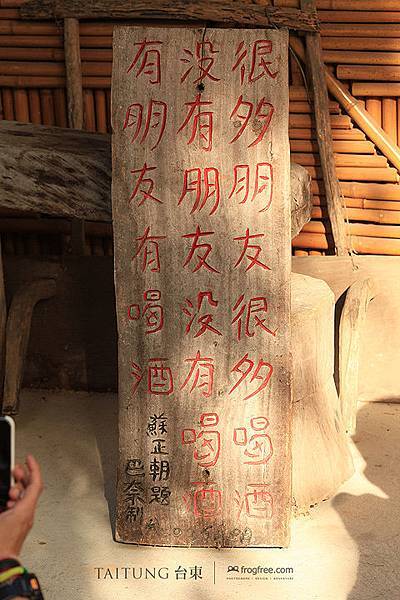 很多朋友很多喝酒
沒有朋友沒有喝酒
有朋友有喝酒
蘇正朝題
巴奈制
TAITUNG 台東
frogfree.com
PHOTOGRAPHY | DESIGN | ADVENTURE